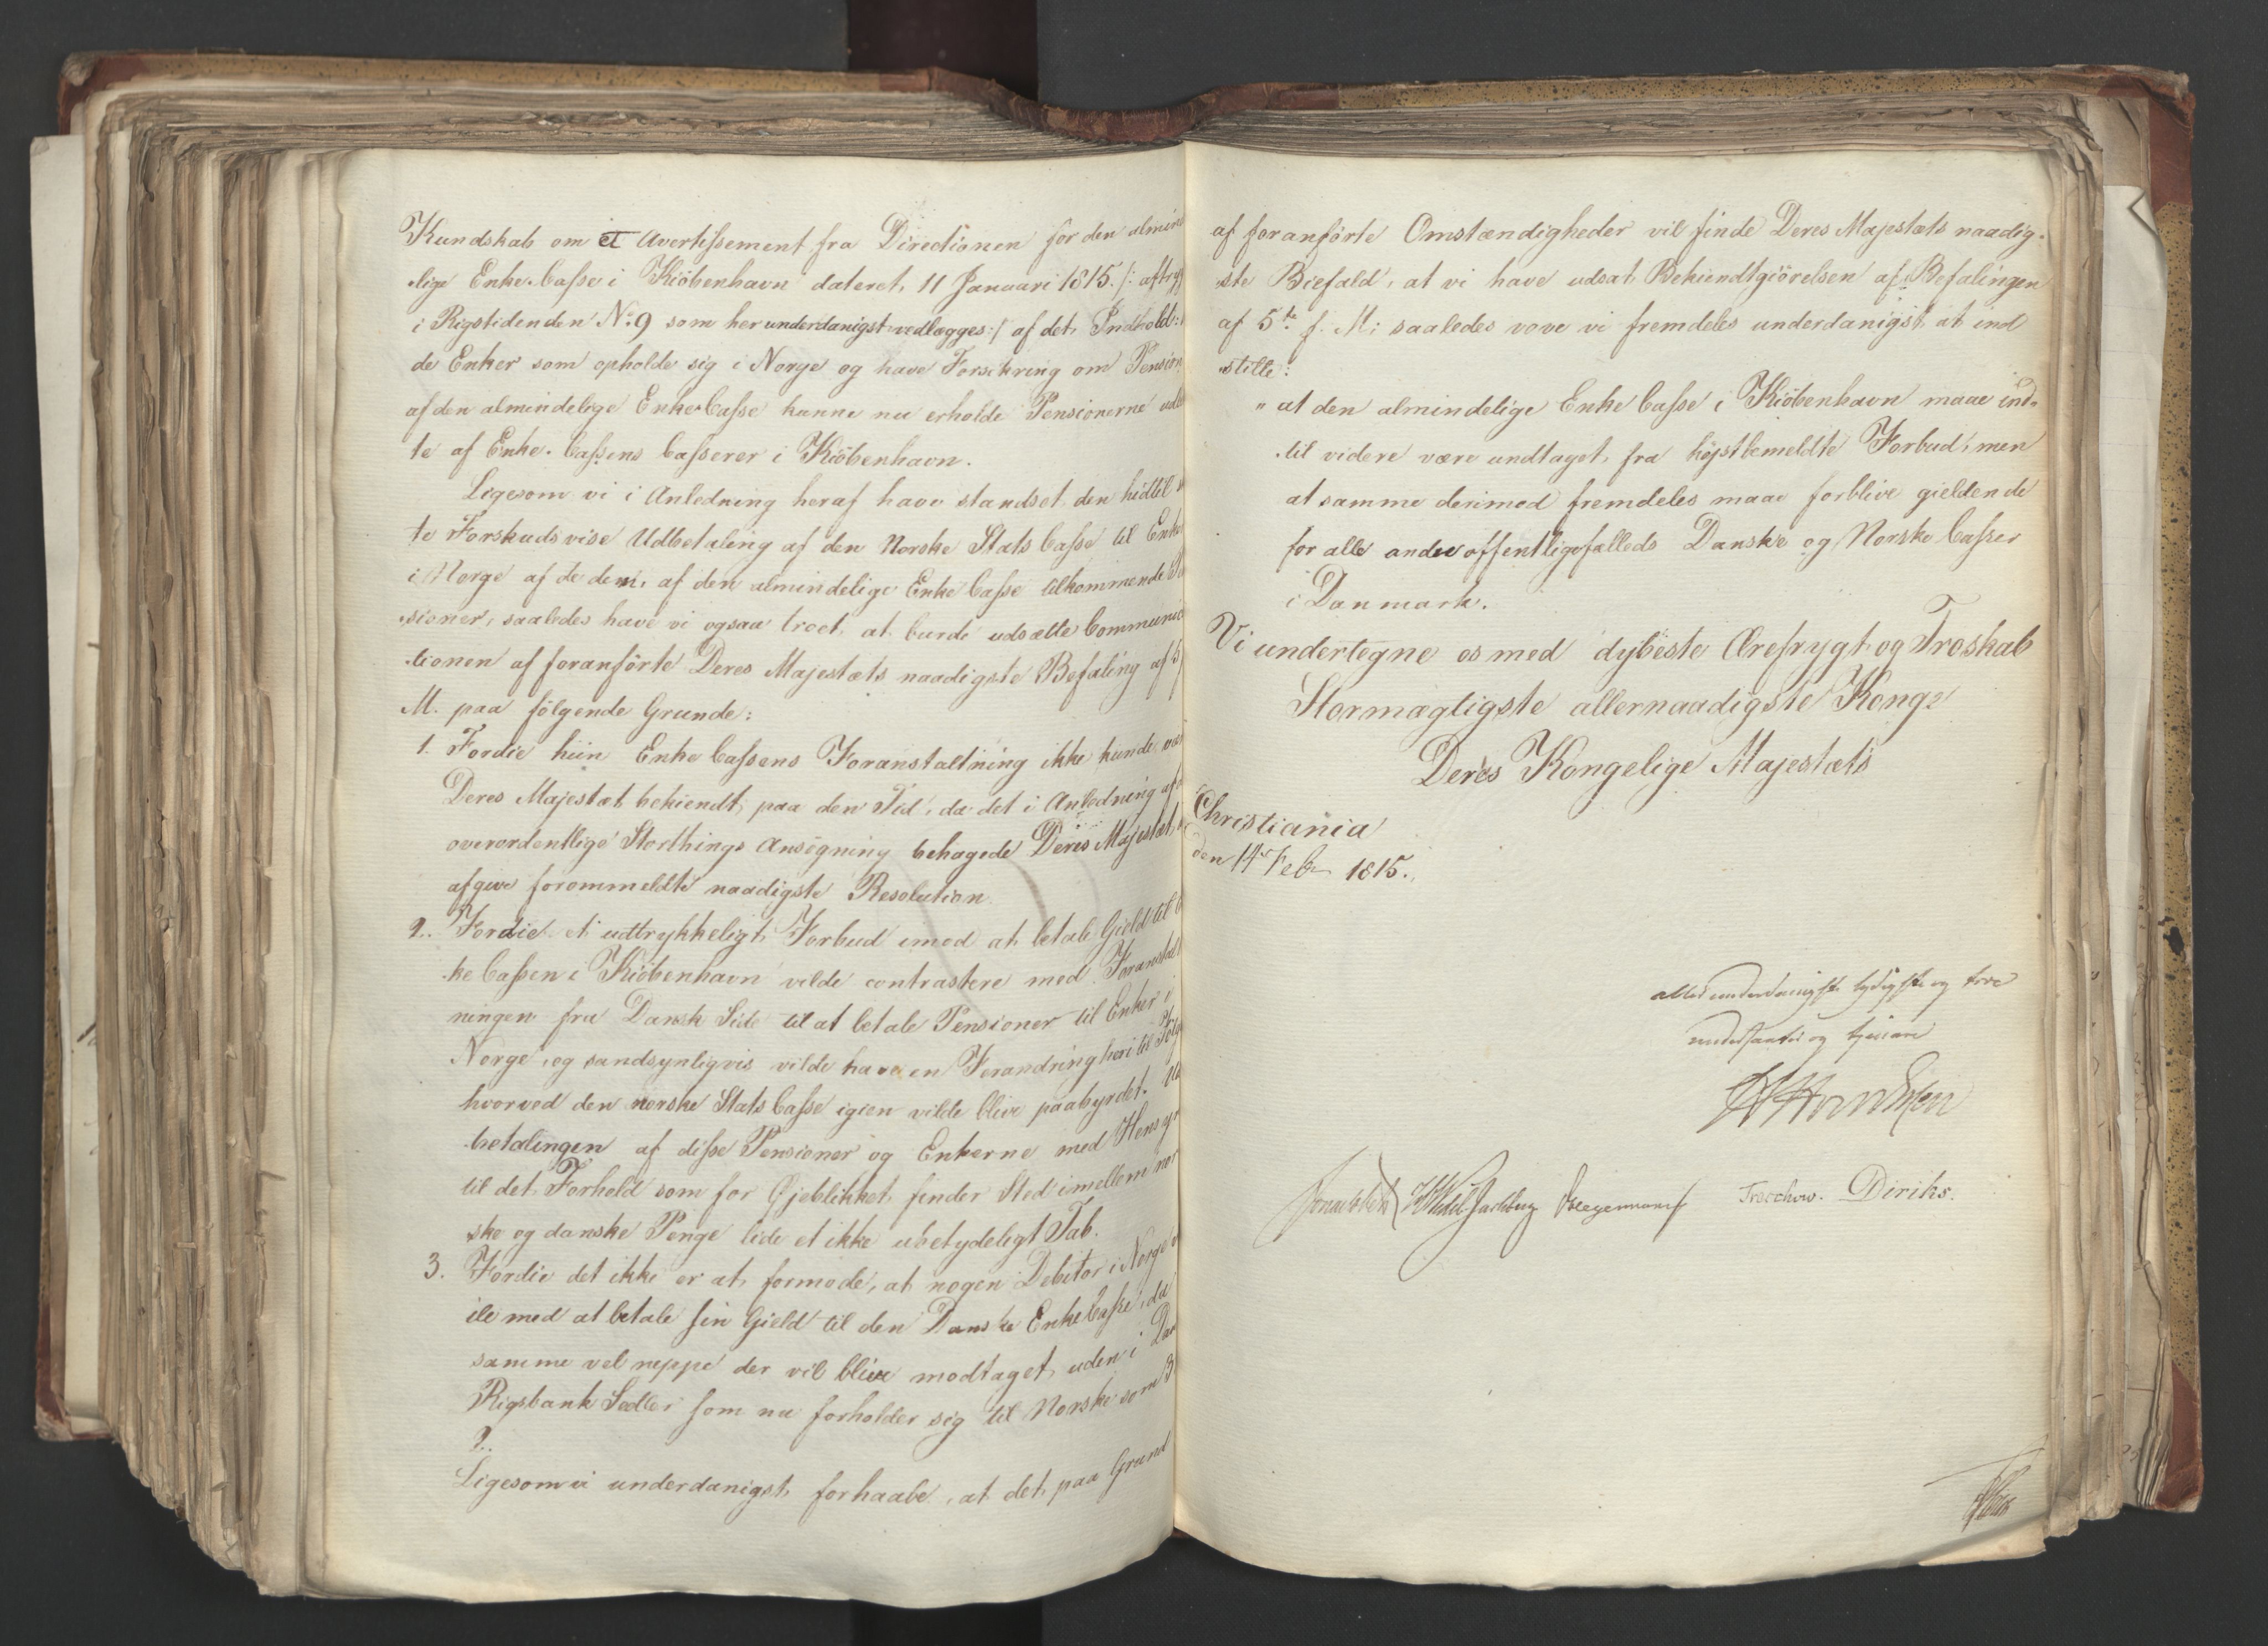 Kundskab om et Avertissement fra Directionen for den almin
-lige Enke-Casse i Kiöbenhavn dateret 11 Januari 1815. /: aftryk
i Rigstidenden No. 9 som her underdanigst vedlægges:/ af det Indhold:
de Enker som opholde sig i Norge og have Forsikring om Pension
af den almindelige Enke Casse kunne nu erholde Pensionerne udb
te af Enke-Cassens Casserer i Kiöbenhavn.
Ligesom vi i Anledning heraf have standset den hidtil
te Forskudsvise Udbetaling af den Norske Stats Casse til Enker
i Norge af de dem, af den almindelige Enke Casse tilkommende
-sioner, saaledes have vi ogsaa troet at burde udsætte Communica
-tionen af foranførte Deres Majestæts naadigste Befaling af 5
M. paa følgende Grunde:
1. Fordie hiin Enke Cassens Foranstaltning ikke kunde være
Deres Majestæt bekiendt paa den Tid, da det i Anledning af
overordentlige Storthings Ansøgning behagede Deres Majestæt
afgive forommeldte naadigste Resolution.
2. Fordie et udtrykkeligt Forbud imod at betale Gield til
-ke Cassen i Kiöbenhavn vilde contrastere med Foranstalt
ningen fra Dansk Side til at betale Pensioner til Enker i
Norge, og sandsynligvis vilde have en Forandring heri til Følge
hvorved den norske Stats Casse igien vilde blive paabyrdet. Ud
-betalingen af disse Pensioner og Enkerne med Hensyn
til det Forhold som for Øjeblikket finder Sted imellem nor
ske og danske Penge lide et ikke ubetydeligt Tab.
3. Fordie det ikke er at formode, at nogen Debitor i Norge
ile med at betale sin Gield til den Danske Enke Casse, da
samme vel neppe der vil blive modtaget uden i Dan
Rigsbank Sedler som nu forholder sig til Norske som 3
2.
Ligesom vi underdanigst forhaabe, at det paa Grund
af foranförte Omstændigheder vil finde Deres Majestæts naadig-
-ste Biefald, at vi have udsat Bekiendtgiörelsen af Befalingen
af 5te f. M: saaledes vove vi fremdeles underdanigst at ind
-stille:
" at den almindelige Enke Casse i Kiöbenhavn maae ind-
-til videre være undtaget fra højstbemeldte Forbud, men
at samme derimod fremdeles maae forblive gieldende
for alle andre offentlige fælleds Danske og Norske Casser
i Danmark.
Vi undertegne os med dybeste Ærefrygt og Troskab
Stormægtigste allernaadigste Konge
Deres Kongelige Majestæts
Christiania
den 14de Febr 1815.
allerunderdanigste lydigste og troe
undersaatter og tjenere
Sommerhjelm
Wedel Jarlsberg Hegermann Treschow. Diriks.